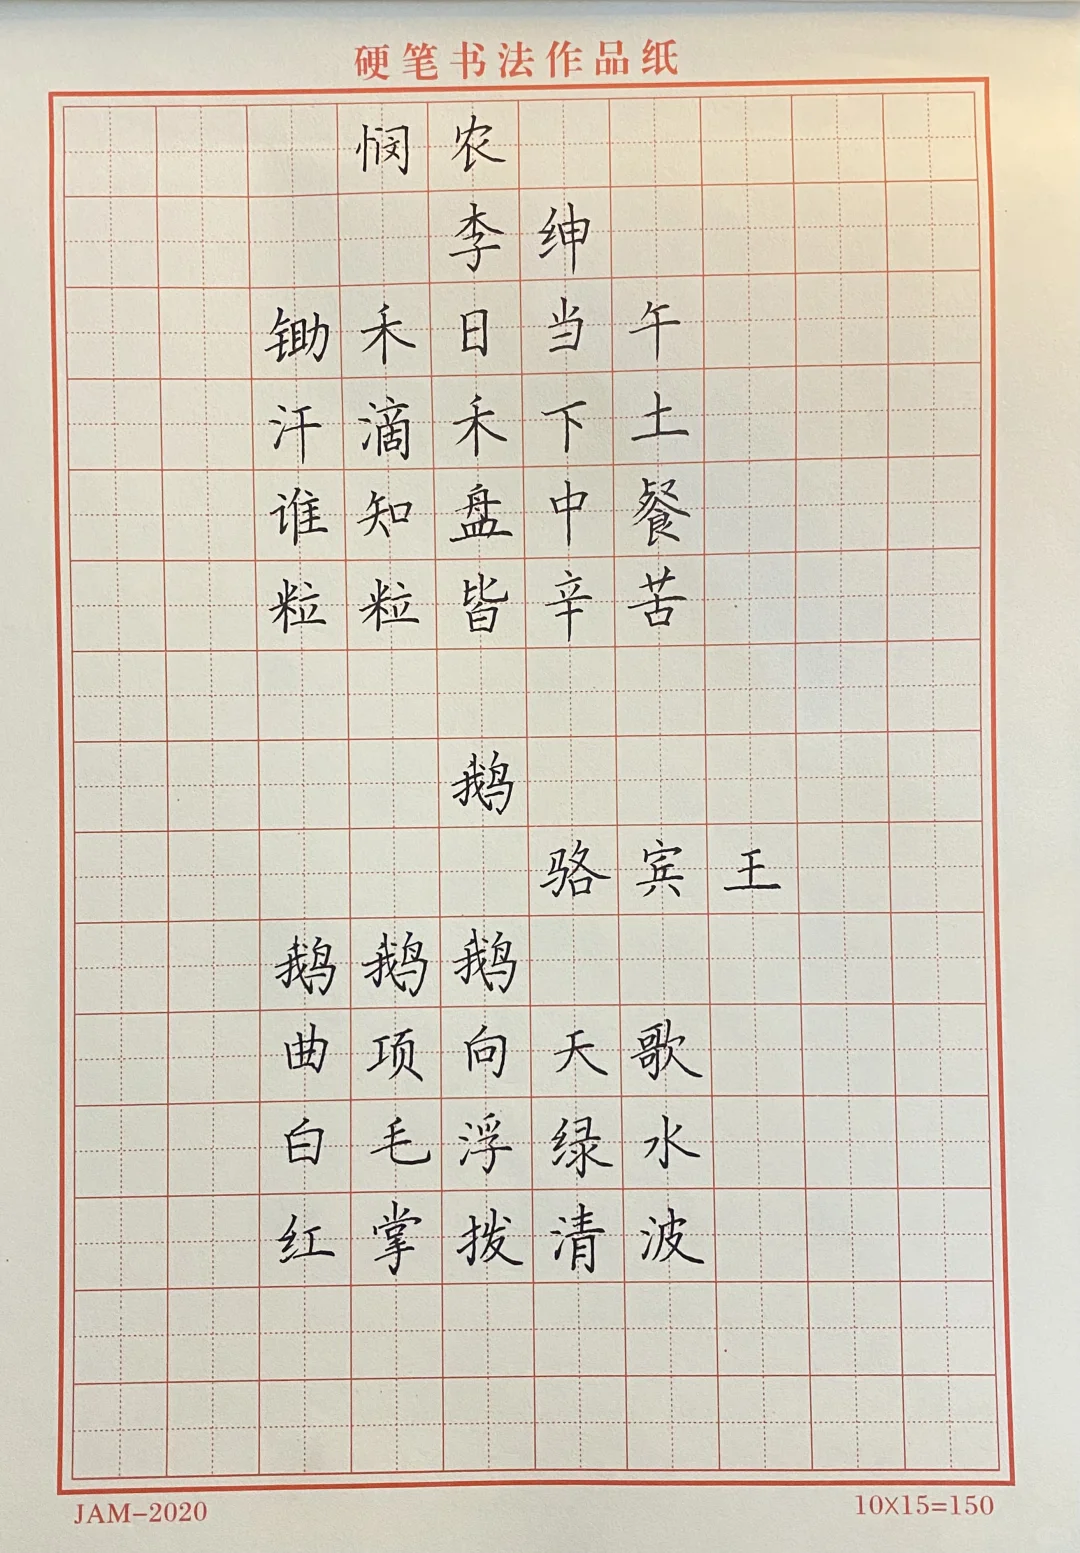 硬笔书法作品纸
悯农
李绅
锄禾日当午
汗滴禾下土
谁知盘中餐
粒粒皆辛苦
鹅
骆宾王
鹅鹅鹅
曲项向天歌
白毛浮绿水
红掌拨清波
JAM-2020
10X15=150